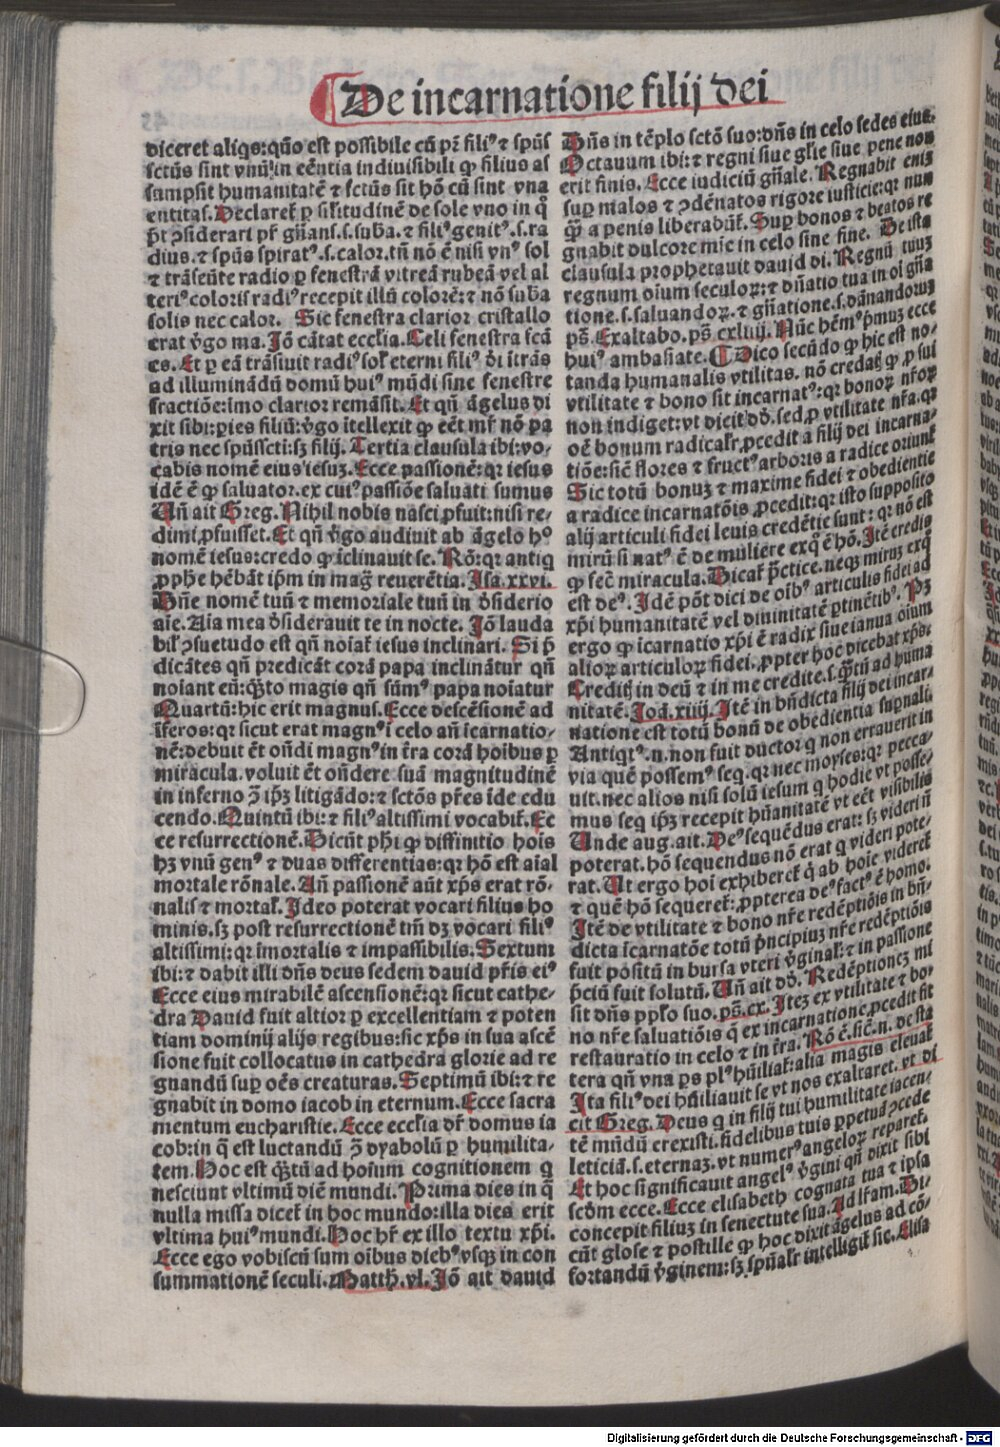 De incarnatione filij dei
diceret aliqs:quõ est possibile cũ pr̃ fili⁹ ⁊ spũs
sctũs sint vnũ in eẽntia indiuisibili ꝙ filius as
sumpsit humanitatẽ ⁊ fctũs sit hõ cũ sint vna
entitas. Declaret̃ ꝑ sil̃itudinẽ de sole vno in q̃
p̃t ↄsiderari pr̃ gñans.s.suba.⁊ fili⁹ genit⁹.s.ra
dius.⁊ spũs spirat⁹.s.calor.tñ nõ ẽ nisi vn⁹ sol
⁊ trãseũte radio ꝑ fenestrã vitreã rubeã vel al
teri⁹ coloris radi⁹ recepit illũ colorẽ:⁊ nõ suba
solis nec calor. Sic fenestra clarior cristallo
erat v̾go ma. Jõ cãtat ecclia. Celi fenestra fcã
es. Et ꝑ eã trãsiuit radi⁹ sol̃ eterni fili⁹ d̾i ĩtrãs
ad illuminãdũ domũ hui⁹ mũdi sine fenestre
fractiõe:imo clarior remãsit. Et qñ ãgelus di
xit sibi:pies filiũ:v̾go ĩtellexit ꝙ eẽt mr̃ nõ pa
tris nec spũsscti:sꝫ filij. Tertia clausula ibi:vo-
cabis nomẽ eius iesuꝫ. Ecce passionẽ:qꝛ iesus
idẽ ẽ ꝙ saluator.ex cui⁹ passiõe saluati sumus
Uñ ait Greg. Nihil nobis nasci ꝓfuit:nisi re-
dimi ꝓfuisset. Et qñ v̾go audiuit ab ãgelo h⁹
nomẽ iesus:credo ꝙ ĩclinauit se. Rõ:qꝛ antiq̃
ꝓphe hẽbãt ip̃m in mag̃ reuerẽtia. Jsa.xxvi.
Dñe nomẽ tuũ ⁊ memoriale tuũ in d̾siderio
aĩe. Aĩa mea d̾siderauit te in nocte. Jõ lauda
bil̃ ↄsuetudo est qñ noĩat̃ iesus inclinari. Si p̃
dicãtes qñ predicãt corã papa inclinãtur qñ
noĩant eũ:q̃ʒto magis qñ sũm⁹ papa noĩatur
Quartũ:hic erit magnus. Ecce descẽsionẽ ad
ĩferos:qꝛ sicut erat magn⁹ ĩ celo añ ĩcarnatio-
nẽ:debuit ẽt oñdi magn⁹ in tr̃a corã hoĩbus ꝑ
miracula.voluit ẽt oñdere suã magnitudinẽ
in inferno ↄ̃ ip̃ꝫ litigãdo:⁊ sctõs pr̃es ĩde edu
cendo. Quintũ ibi:⁊ fili⁹ altissimi vocabit̃. Ec
ce resurrectionẽ. Dicũt phi ꝙ diffinitio hoĩs
hꝫ vnũ gen⁹ ⁊ duas differentias:qꝛ hõ est aĩal
mortale rõnale. Añ passionẽ aũt xp̃s erat rõ-
nalis ⁊ mortal̃. Jdeo poterat vocari filius ho
minis.sꝫ post resurrectionẽ tm̃ dꝫ vocari fili⁹
altissimi:qꝛ ĩmortalis ⁊ impassibilis. Sextum
ibi:⁊ dabit illi dñs deus sedem dauid pr̃is ei⁹
Ecce eius mirabilẽ ascensionẽ:qꝛ sicut cathe-
dra Dauid fuit altior ꝑ excellentiam ⁊ poten
tiam dominij alijs regibus:sic xp̃s in sua ascẽ
sione fuit collocatus in cathedra glorie ad re
gnandũ suꝑ oẽs creaturas. Septimũ ibi:⁊ re
gnabit in domo iacob in eternum. Ecce sacra
mentum eucharistie. Ecce ecclia dr̃ domus ia
cob:in q̃ est luctandũ ↄ̃ dyabolũ ꝑ humilita-
tem. Hoc est q̃ʒtũ ad hoĩum cognitionem q
nesciunt vltimũ diẽ mundi. Prima dies in q̃
nulla missa dicet̃ in hoc mundo:illa dies erit
vltima hui⁹ mundi. Hoc hr̃ ex illo textu xp̃i.
Ecce ego vobiscũ sum oĩbus dieb⁹ vsqꝫ in con
summationẽ seculi. Matth̃.vl. Jõ ait dauid
Dñs in tẽplo sctõ suo:dñs in celo sedes eius.
Octauum ibi:⁊ regni siue gl̃ie siue pene non
erit finis. Ecce iudiciũ gñale. Regnabit eniꝫ
suꝑ malos ⁊ ↄdẽnatos rigore iusticie:qꝛ nun
q̃ʒ a penis liberabũt̃. Suꝑ bonos ⁊ beatos re
gnabit dulcore mie in celo sine fine. De ista
clausula prophetauit dauid di. Regnũ tuuꝫ
regnum oĩum seculoꝝ:⁊ dñatio tua in oĩ gña
tione.s.saluandoꝝ.⁊ gñatione.s.dãnandoruꝫ
ps̃. Exaltabo.ps̃ cxliiij. Nũc hẽm⁹ p̃muꝫ ecce
hui⁹ ambasiate. ¶ Dico secũdo ꝙ hic est no-
tanda humanalis vtilitas. nõ credaĩ ꝙ ꝓ sui
vtilitate ⁊ bono sit incarnat⁹:qꝛ bonoꝝ nr̃oꝝ
non indiget:vt dicit dd̃. sed ꝓ vtilitate nr̃a.qꝛ
oẽ bonum radicalr̃ ꝓcedit a filij dei incarna-
tiõe:sic̃ flores ⁊ fruct⁹ arboris a radice oriunt̃
Sic totũ bonuꝫ ⁊ maxime fidei ⁊ obedientie
a radice incarnatõis ꝓcedit:qꝛ isto supposito
alij articuli fidei leuis credẽtie sunt:qꝛ nõ est
mirũ si nat⁹ ẽ de muliere exq̃ ẽ hõ. Jtẽ credis
ꝙ fec̃ miracula. Dicat̃ p̃ctice.neqꝫ miruꝫ exq̃
est de⁹. Jdẽ põt dici de oĩb⁹ articulis fidei ad
xp̃i humanitatẽ vel diuinitatẽ ꝑtinẽtib⁹. Pꝫ
ergo ꝙ icarnatio xp̃i ẽ radix siue ianua oĩum
alioꝝ articuloꝝ fidei.ꝓpter hoc dicebat xp̃s.
Creditꝭ in deũ ⁊ in me credite.s.q̃ʒtũ ad huma
nitatẽ. Joã.xiiij. Jtẽ in bñdicta filij dei incar-
natione est totũ bonũ de obedientia supnali.
Antiqt⁹.n.non fuit ductor q non errauerit in
via quẽ possem⁹ seq.qꝛ nec moyses:qꝛ pecca-
uit.nec alios nisi solũ iesum q hodie vt posse-
mus seq ip̃ꝫ recepit hũanitatẽ vt eẽt visibilis
Unde aug.ait. De⁹ sequẽdus erat:sꝫ videri ñ
poterat.hõ sequendus nõ erat q videri pote-
rat. Ut ergo hoĩ exhiberet̃ q̃ ab hoĩe videret̃
⁊ quẽ hõ sequeret̃:ꝓpterea de⁹ fact⁹ ẽ homo.
Jtẽ de vtilitate ⁊ bono nr̃e redẽptiõis in bñ-
dicta ĩcarnatõe totũ p̃ncipiuꝫ nr̃e redẽptiõis
fuit positũ in bursa vteri v̾ginal̃:⁊ in passione
p̃ciũ fuit solutũ. Uñ ait dd̃. Redẽptioneꝫ mi
sit dñs pplo suo.ps̃.cx. Jteꝫ ex vtilitate ⁊ bo-
no nr̃e saluatiõis q̃ ex incarnatione ꝓcedit fit
restauratio in celo ⁊ in tr̃a. Rõ ẽ.sic̃.n. de sta
tera qñ vna ps pl⁹ hũiliat̃:alia magis eleuat̃
Jta fili⁹ dei hũiliauit se vt nos exaltaret.vt di
cit Greg. Deus q in filij tui humilitate iacen-
tẽ mũdũ erexisti.fidelibus tuis ꝑpetuã ↄcede
leticiã.s.eternaꝫ.vt numer⁹ angeloꝝ reparet̃.
Et hoc significauit angel⁹ v̾gini qñ dixit sibi
scd̃m ecce. Ecce elisabeth cognata tua ⁊ ipsa
concepit filiuꝫ in senectute sua. Ad lr̃am. Di-
cũt glose ⁊ postille ꝙ hoc dixit ãgelus ad cõ-
fortandũ v̾ginem:sꝫ sp̃ualr̃ intelligit̃ sic. Elisa
Digitalisierung gefördert durch die Deutsche Forschungsgemeinschaft - DFG